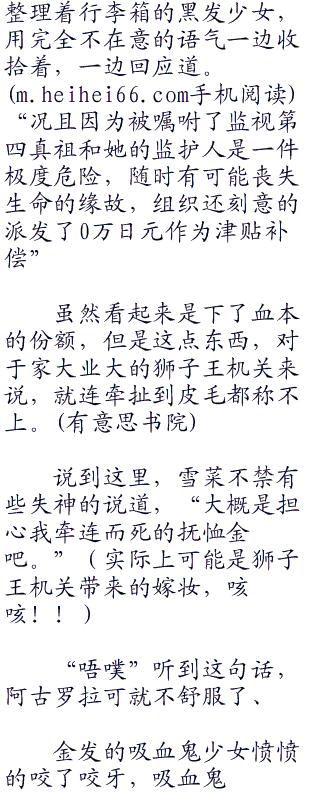 整理着行李箱的黑发少女，
用完全不在意的语气一边收
拾着，一边回应道。
(m.heihei66.com手机阅读)
“况且因为被嘱咐了监视第
四真祖和她的监护人是一件
极度危险，随时有可能丧失
生命的缘故，组织还刻意的
派发了0万日元作为津贴补
偿”
虽然看起来是下了血本
的份额，但是这点东西，对
于家大业大的狮子王机关来
说，就连牵扯到皮毛都称不
上。(有意思书院)
说到这里，雪菜不禁有
些失神的说道，“大概是担
心我牵连而死的抚恤金
吧。”（实际上可能是狮子
王机关带来的嫁妆，咳
咳！！）
“唔噗”听到这句话，
阿古罗拉可就不舒服了、
金发的吸血鬼少女愤愤
的咬了咬牙，吸血鬼